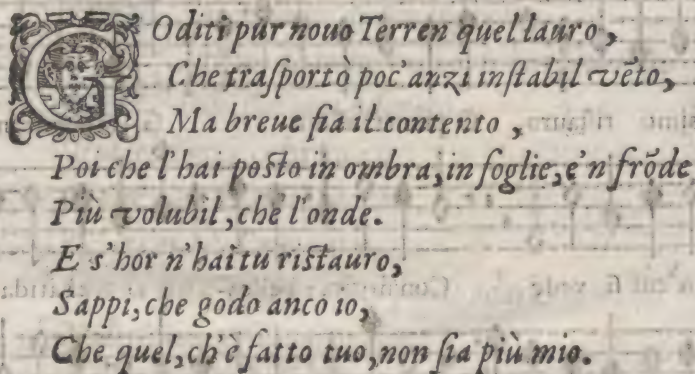 Goditi pur nouo Terren quel lauro,
Che traſportò poc'anzi inſtabil vẽto,
Ma breue fia il contento,
Poi che l'hai poſto in ombra, in foglie, e'n frõde
Più volubil, che l'onde.
E s'hor n'hai tu riſtauro,
Sappi, che godo anco io,
Che quel, ch'è fatto tuo, non ſia più mio.